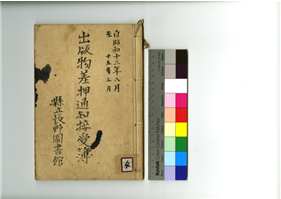 自昭和十二年八月
至 十五年三月
出版物差押通知接受簿
縣立長野圖書館